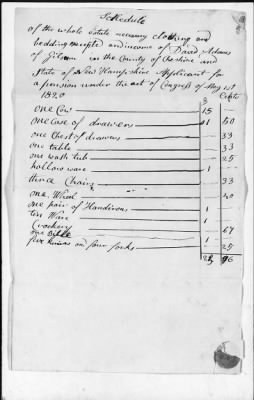 Schedule
of the whole estate necessary clothing and
bedding excepted and income of David Adams
of Gilsum in the County of Cheshire and
State of New Hampshire Applicant for
a pension under the act of Congress of May 1st
1820 $ Cents
one Cow 15 —
one case of drawers 1 50
one Chest of drawers — 33
one table — 33
one wash tub — 25
hollow ware 1 —
three Chairs — 33
one Wheel — 40
one pair of Handirons 1 —
tin Ware 1
Crockery — 67
one Bible
five knives and four forks 1 25
96